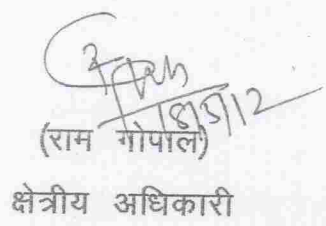 18/5/12
(राम गोपाल)
क्षेत्रीय अधिकारी